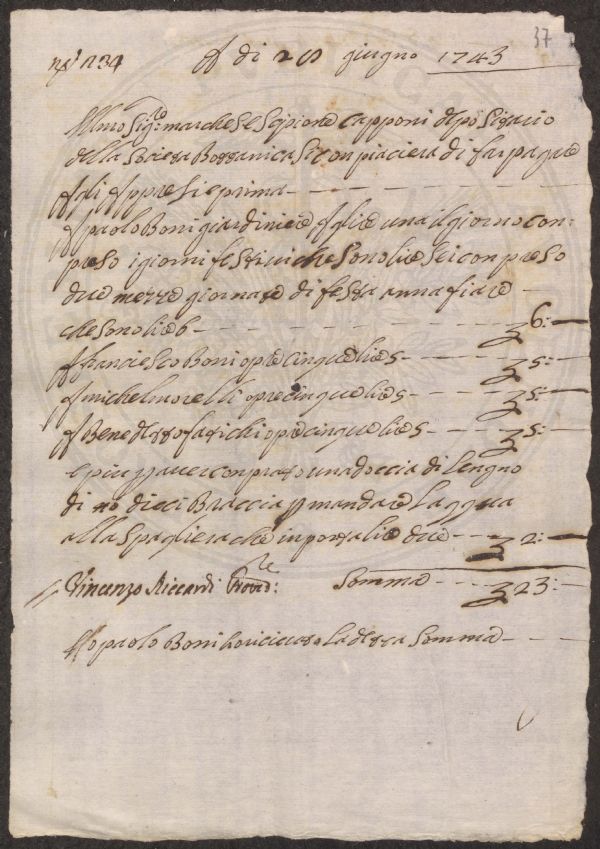 37
No 134 A di 28 giugno 1743
Illmo Sigre marchese Scipione Capponi depositario
della Società Bottanica Si Conpiacierà di far pagare
A di Appresi e prima
A paolo Boni giardiniere A lire una il giorno Con:
preso i giorni festivi che Sono lire Sei Conpreso
due mezze giornate di festa annafiare
che Sono lire 6 6:
A franciesco Boni opre cinque lire 5 5:
A michel morelli opre cinque lire 5 5:
A Benedetto fatichi opre cinque lire 5 5:
e piu p aver Conprato una doccia di Lengno
di no dieci Braccia p mandare Laqqua
alla Spagliera che inporta lire due 2:
Vincenzo Riccardi Provre: Somma 23:
Io paolo Boni ho riceuto La detta Somma